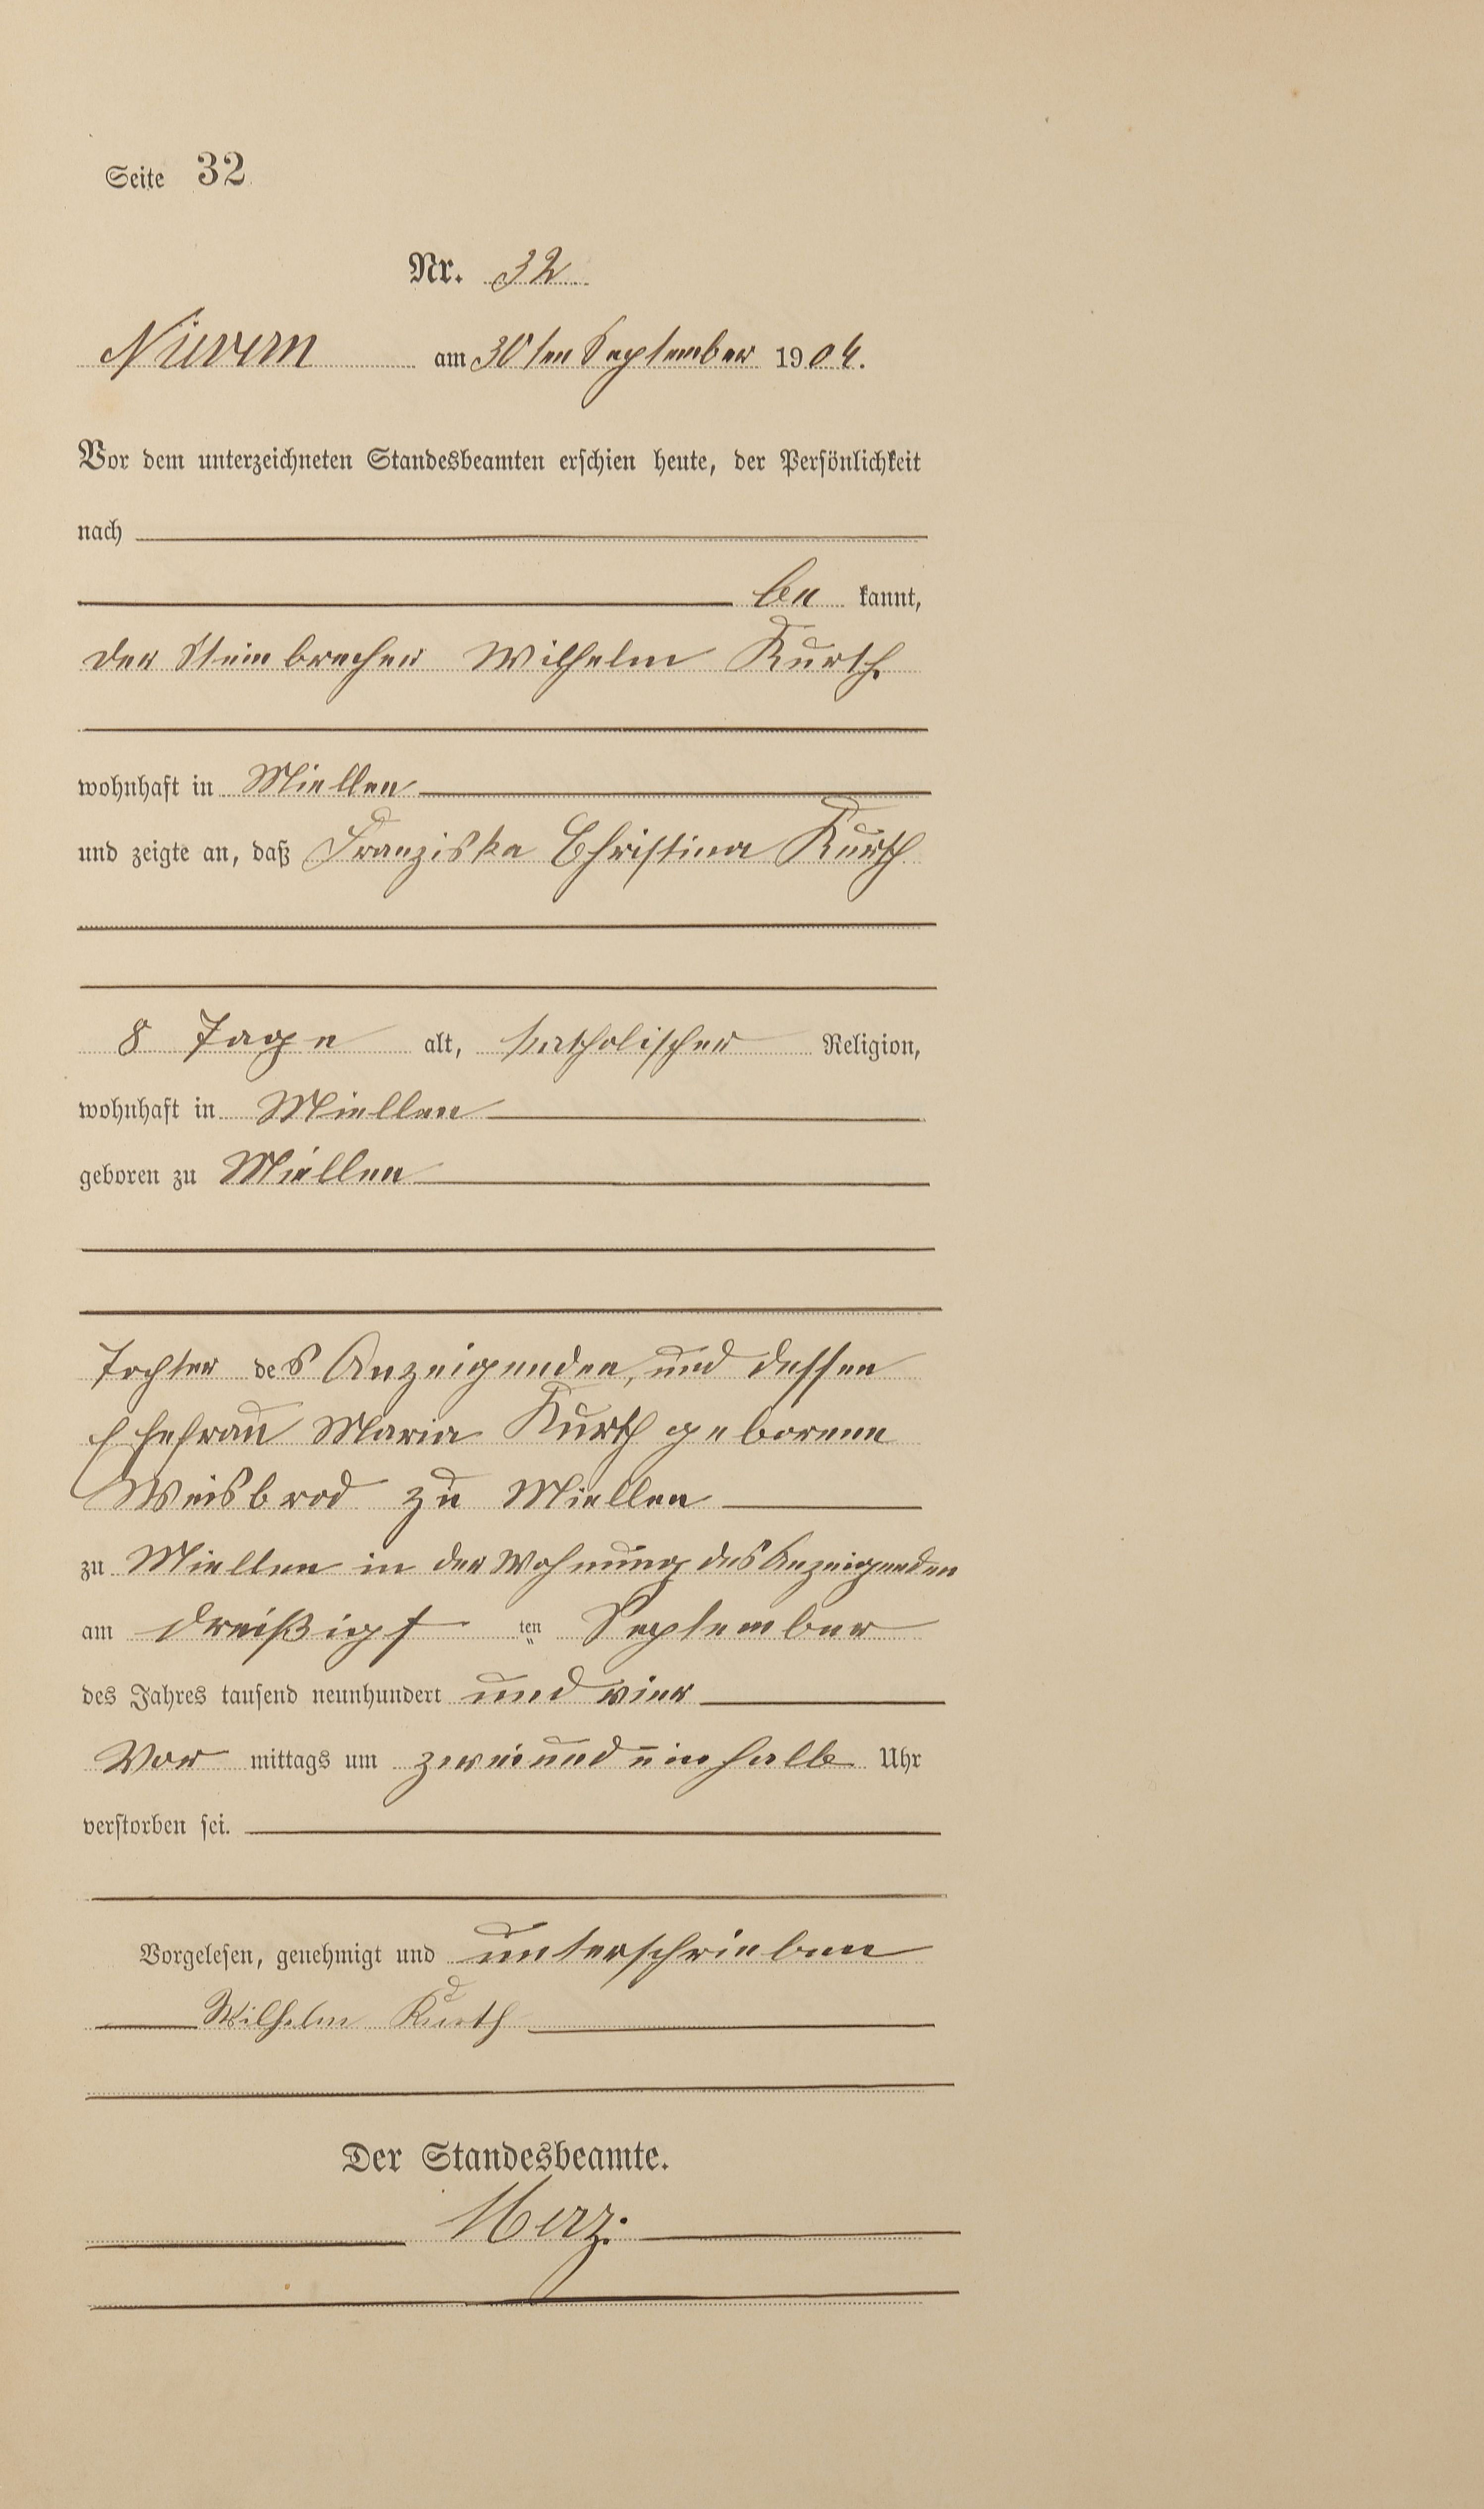 Seite 32
Nr. 32
Nievern am 30ten September 1904.
Vor dem unterzeichneten Standesbeamten erschien heute, der Persönlichkeit
nach
be kannt,
der Steinbrecher Wilhelm Kurth
wohnhaft in Miellen
und zeigte an, daß Franziska Christina Kurth
8 Tage alt, katholischer Religion,
wohnhaft in Miellen
geboren zu Miellen
Tochter des Anzeigenden, und dessen
Ehefrau Maria Kurth geborene
Weisbrod zu Miellen
zu Miellen in der Wohnung des Anzeigenden
am dreißigst ten September
des Jahres tausend neunhundert und vier
Vor mittags um zwei und ein halb Uhr
verstorben sei.
Vorgelesen, genehmigt und unterschrieben
Wilhelm Kurth
Der Standesbeamte.
Merz.